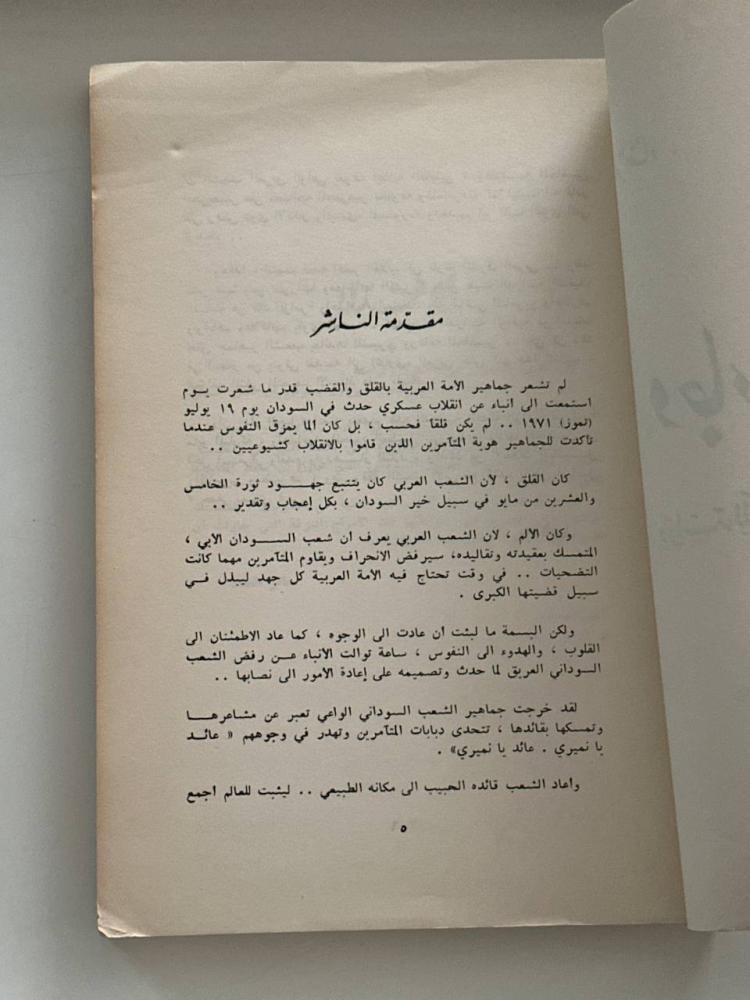 مقدمة الناشر
لم تشعر جماهير الأمة العربية بالقلق والغضب قدر ما شعرت يـوم
استمعت الى أنباء عن انقلاب عسكري حدث في السودان يوم ١٩ يوليو
(تموز) ١٩٧١ .. لم يكن قلقا فحسب ، بل كان ألما يمزق النفوس عندما
تأكدت للجماهير هوية المتآمرين الذين قاموا بالانقلاب كشيوعيين ..
كان القلق ، لأن الشعب العربي كان يتتبع جهـود ثورة الخامس
والعشرين من مايو في سبيل خير السودان ، بكل إعجاب وتقدير ..
وكان الألم ، لان الشعب العربي يعرف أن شعب الســـودان الأبي ،
المتمسك بعقيدته وتقاليده، سيرفض الانحراف ويقاوم المتآمرين مهما كانت
التضحيات .. في وقت تحتاج فيه الأمة العربية كل جهد ليبذل فـي
سبيل قضيتها الكبرى .
ولكن البسمة ما لبثت أن عادت الى الوجوه ، كما عاد الاطمئنان الى
القلوب ، والهدوء الى النفوس ، ساعة توالت الأنباء عـن رفض الشعب
السوداني العريق لما حدث وتصميمه على إعادة الأمور الى نصابها ..
لقد خرجت جماهير الشعب السوداني الواعي تعبر عن مشاعرهـا
وتمسكها بقائدها ، تتحدى دبابات المتآمرين وتهدر في وجوههم « عائـد
يا نميري . عائد يا نميري» .
وأعاد الشعب قائده الحبيب الى مكانه الطبيعي .. ليثبت للعالم اجمع
٥